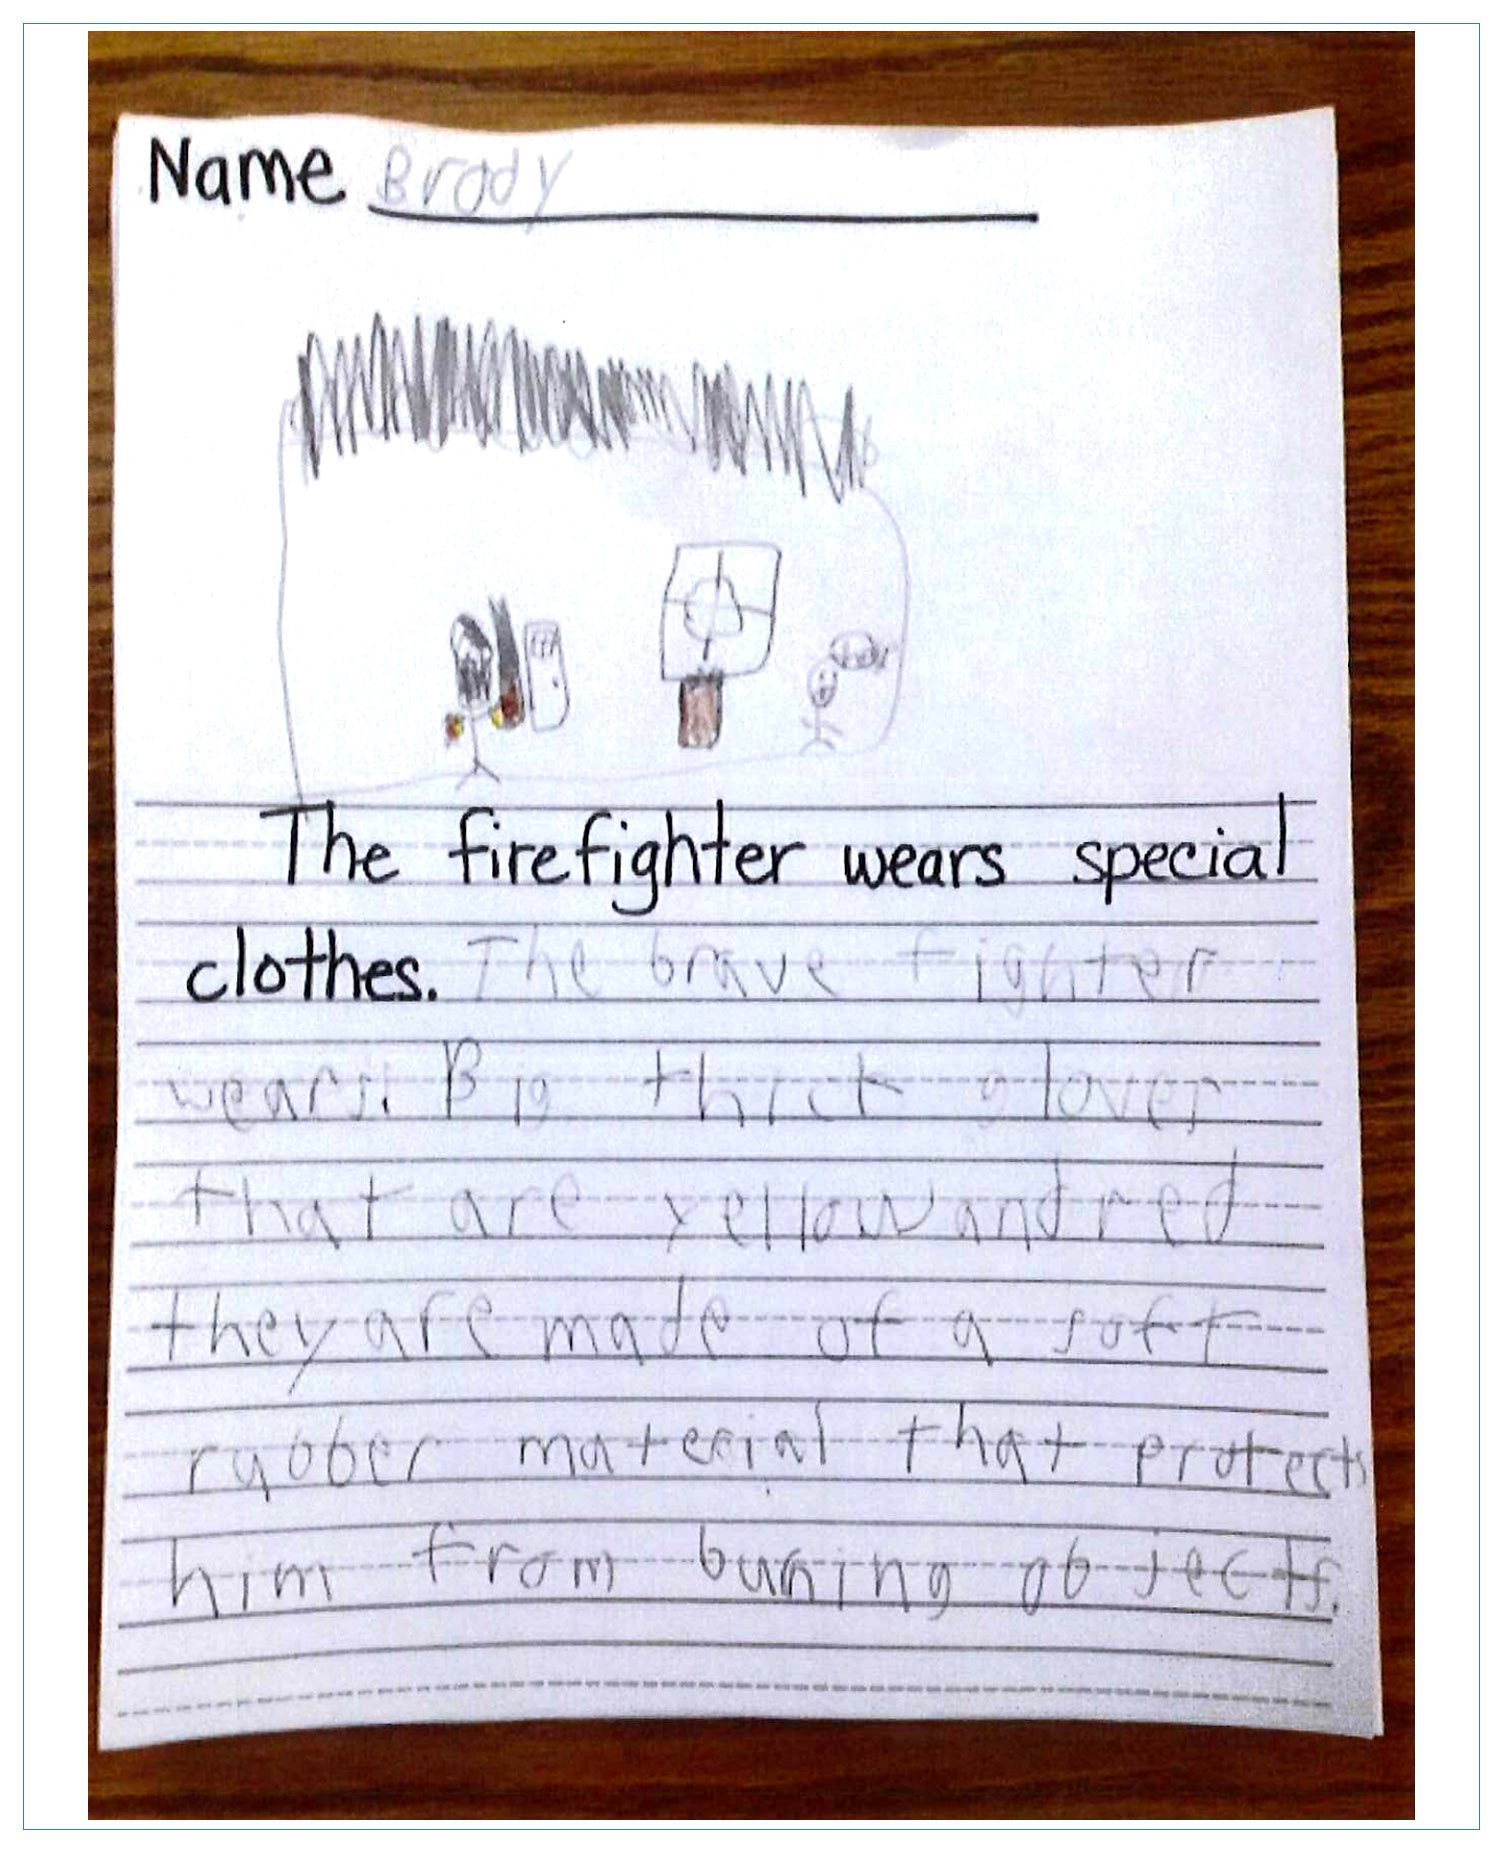 Name Brody
The firefighter wears special
clothes. The brave fighter
wears. Big thick gloves
that are yellow and red
they are made of a soft
rubber material that protects
him from buning objects.